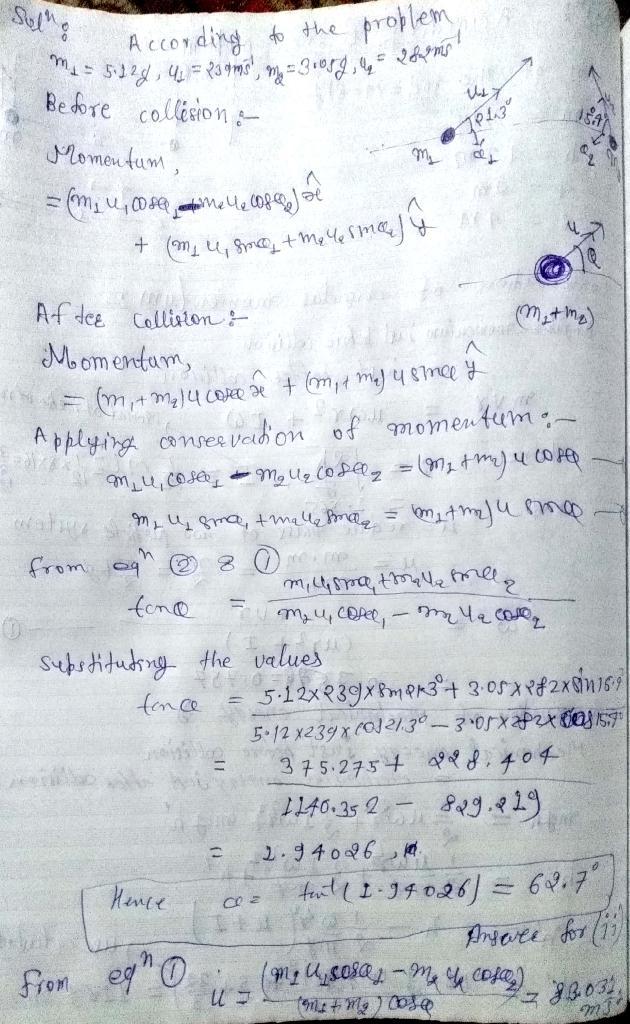 Solⁿ:
According to the problem
m₁ = 5.12g, u₁ = 239ms⁻¹, m₂ = 3.05g, u₂ = 282ms⁻¹
Before collision :-
u₁
21.3°
m₁
Momentum,
= (m₁u₁cosθ₁ - m₂u₂cosθ₂) x̂
+ (m₁u₁sinθ₁ + m₂u₂sinθ₂) ŷ
u
θ
(m₁+m₂)
After collision :-
Momentum,
= (m₁+m₂)u cosθ x̂ + (m₁+m₂) u sinθ ŷ
Applying conservation of momentum :-
m₁u₁cosθ₁ - m₂u₂cosθ₂ = (m₁+m₂) u cosθ
m₁u₁sinθ₁ + m₂u₂sinθ₂ = (m₁+m₂) u sinθ
from eqⁿ ② & ①
tanθ = m₁u₁sinθ₁ + m₂u₂sinθ₂ / m₁u₁cosθ₁ - m₂u₂cosθ₂
Substituting the values
tanθ = 5.12x239xsin21.3° + 3.05x282xsin15.4° / 5.12x239xcos21.3° - 3.05x282xcos15.4°
= 375.275 + 228.404 / 1140.352 - 829.219
= 1.94026
Hence θ = tan⁻¹(1.94026) = 62.7°
Answer for (ii)
from eqⁿ ① u = (m₁u₁cosθ₁ - m₂u₂cosθ₂) / (m₁+m₂) cosθ = 83.031 ms⁻¹